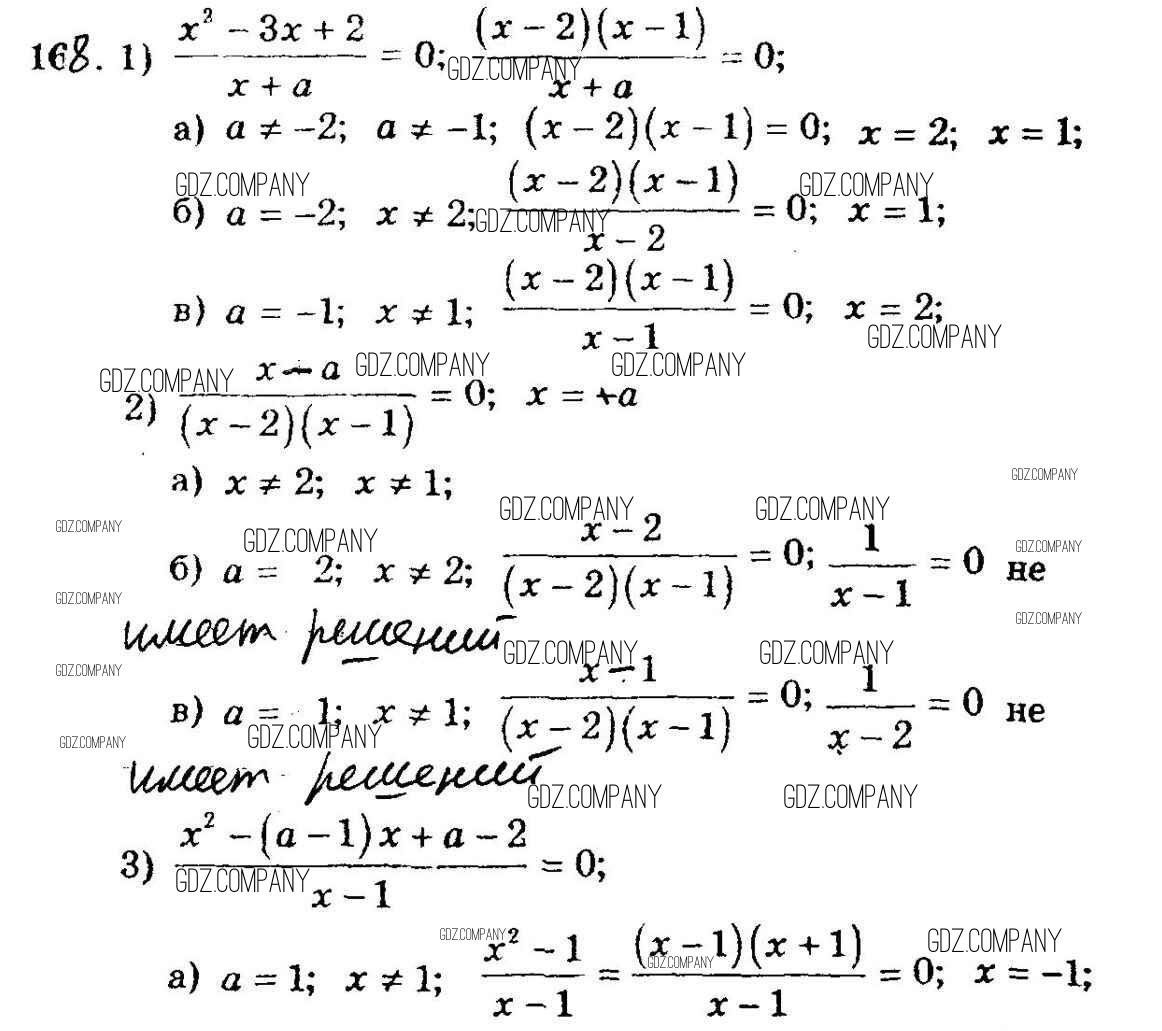 168. 1) (x² − 3x + 2)/(x + a) = 0; ((x − 2)(x − 1))/(x + a) = 0;
GDZ.COMPANY
а) a ≠ −2; a ≠ −1; (x − 2)(x − 1) = 0; x = 2; x = 1;
GDZ.COMPANY GDZ.COMPANY
б) a = −2; x ≠ 2; ((x − 2)(x − 1))/(x − 2) = 0; x = 1;
GDZ.COMPANY
в) a = −1; x ≠ 1; ((x − 2)(x − 1))/(x − 1) = 0; x = 2;
GDZ.COMPANY
GDZ.COMPANY GDZ.COMPANY GDZ.COMPANY
2) (x − a)/((x − 2)(x − 1)) = 0; x = +a
а) x ≠ 2; x ≠ 1;
GDZ.COMPANY
GDZ.COMPANY GDZ.COMPANY
GDZ.COMPANY GDZ.COMPANY GDZ.COMPANY
б) a = 2; x ≠ 2; (x − 2)/((x − 2)(x − 1)) = 0; 1/(x − 1) = 0 не
GDZ.COMPANY GDZ.COMPANY
имеет решений
GDZ.COMPANY GDZ.COMPANY
GDZ.COMPANY
в) a = 1; x ≠ 1; (x − 1)/((x − 2)(x − 1)) = 0; 1/(x − 2) = 0 не
GDZ.COMPANY GDZ.COMPANY
имеет решений
GDZ.COMPANY GDZ.COMPANY
3) (x² − (a − 1)x + a − 2)/(x − 1) = 0;
GDZ.COMPANY
GDZ.COMPANY GDZ.COMPANY
а) a = 1; x ≠ 1; (x² − 1)/(x − 1) = ((x − 1)(x + 1))/(x − 1) = 0; x = −1;
GDZ.COMPANY